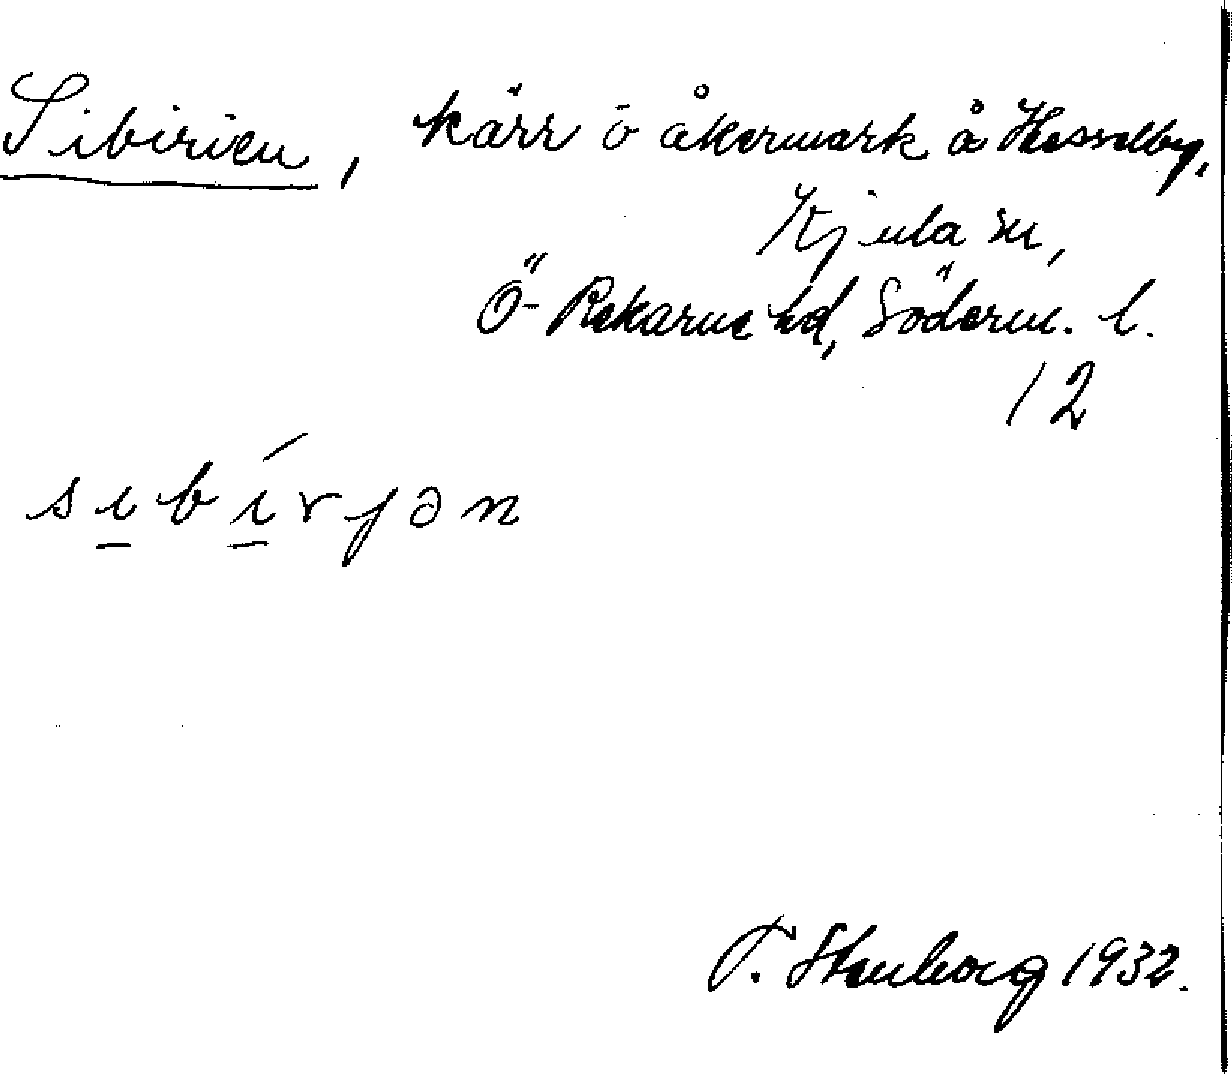 Sibirien, kärr o åkermark å Hesselby,
Kjula sn,
Ö-Rekarne hd, Söderm. l.
12
sɩbɩ́rjən
T. Stenborg 1932.